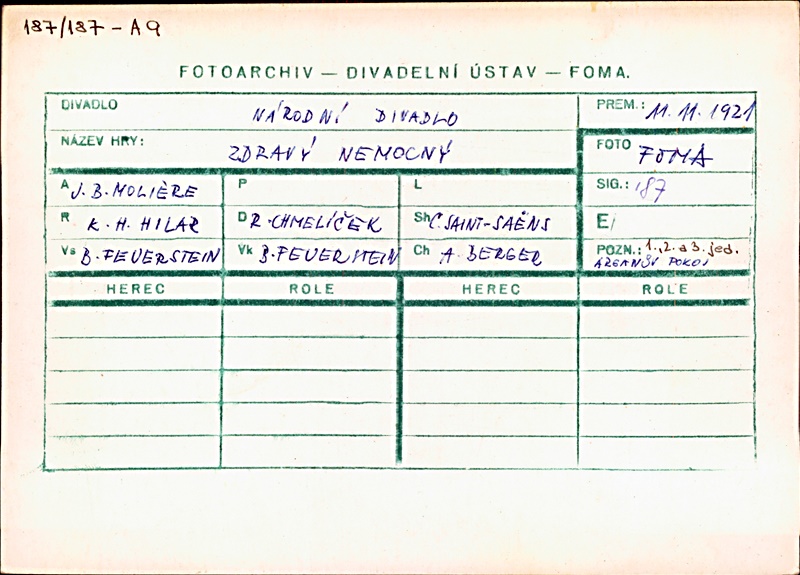 187/187 - A9
FOTOARCHIV — DIVADELNÍ ÚSTAV — FOMA.
DIVADLO NÁRODNÍ DIVADLO PREM.: 11. 11. 1921
NÁZEV HRY: ZDRAVÝ NEMOCNÝ FOTO FOMA
A J. B. MOLIÈRE P L SIG.: 187
R K. H. HILAR D R. CHMELÍČEK Sh C. SAINT-SAËNS E/
Vs B. FEUERSTEIN Vk B. FEUERSTEIN Ch A. BERGER POZN.: 1., 2. a 3. jed.
ARGANŮV POKOJ
HEREC ROLE HEREC ROLE